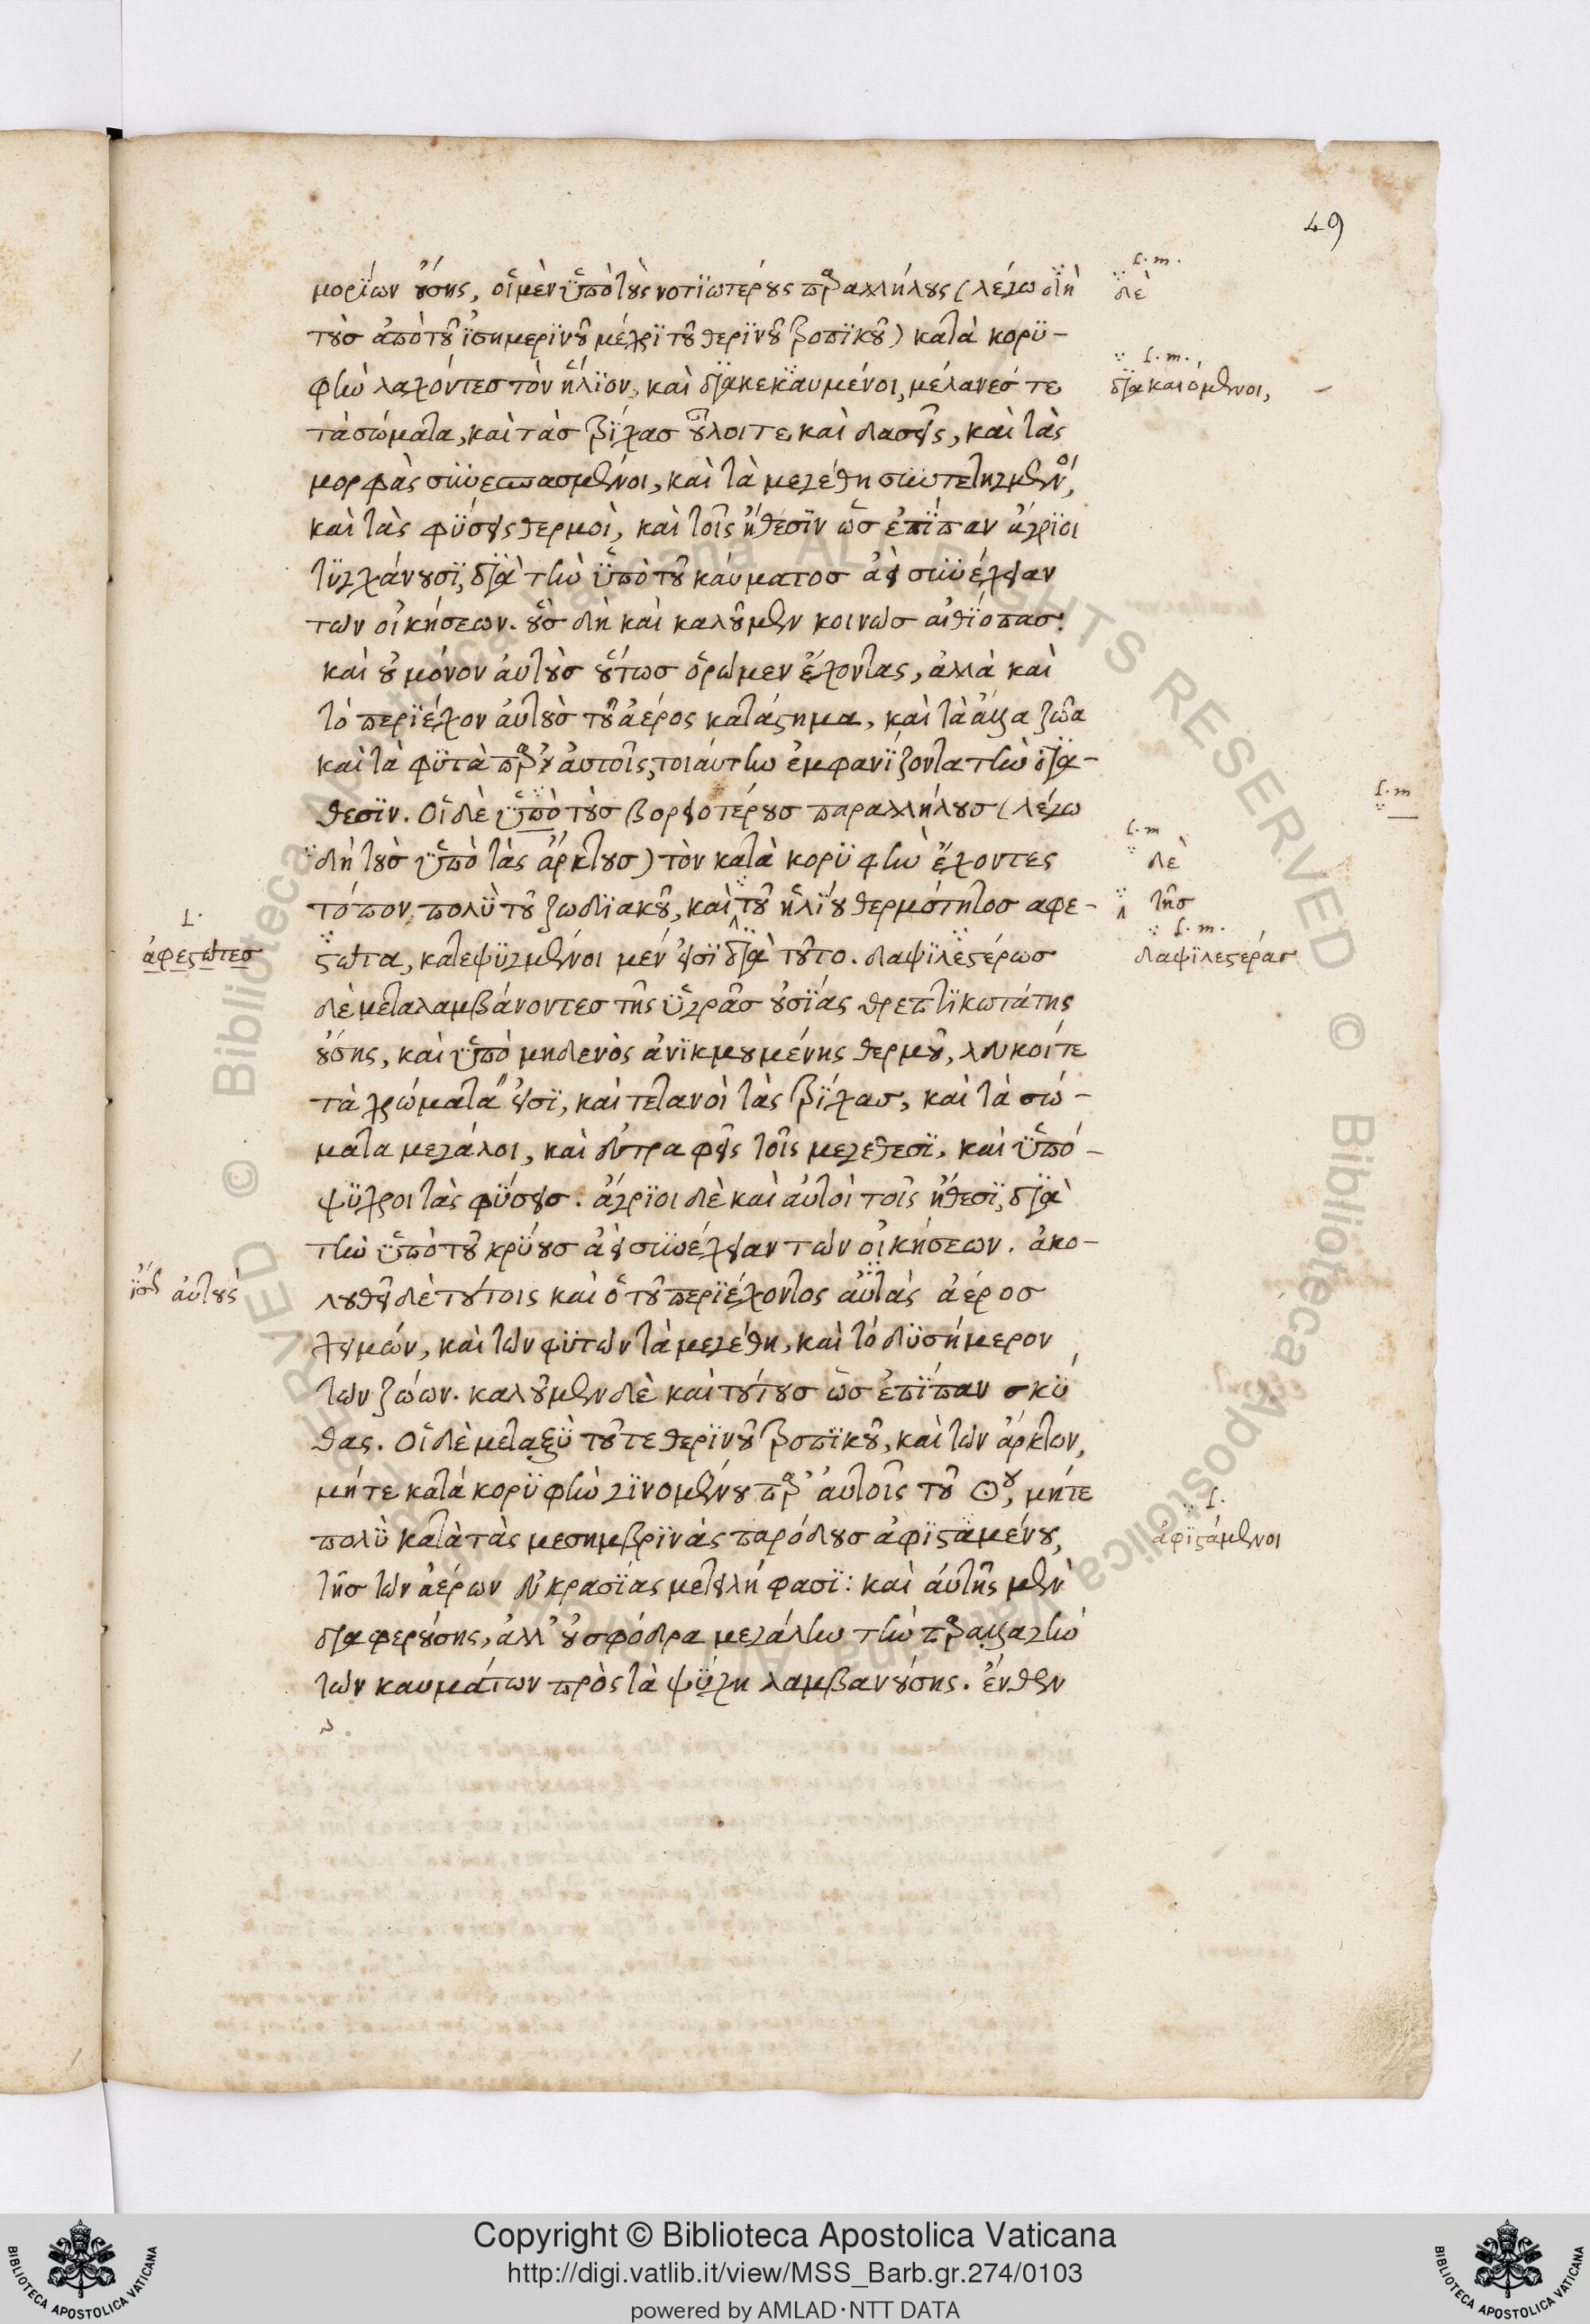 49
μορϊων ούσης, οἱ μὲν ὑπὸ τοὺς νοτϊωτέρους παραλλήλους (λέγω δὴ
τοὺσ ἀπὸ τοῦ ϊσημερϊνοῦ μέχρϊ τοῦ θερϊνοῦ τροπϊκοῦ) κατὰ κορϋ-
φὴν λαχόντεσ τὸν ἥλϊον, καὶ δϊακεκαυμένοι, μέλανεσ τε
τὰ σώματα, καὶ τὰσ τρίχασ οὖλοι τε καὶ δασεῖς, καὶ τὰς
μορφὰς συνεσπασμένοι, καὶ τὰ μεγέθη συντετηγμένοι,
καὶ τὰς φύσεις θερμοὶ, καὶ τοῖς ἤθεσϊν ὡσ ἐπϊπαν ἄγρϊοι
τϋγχάνουσϊ, δϊὰ τὴν ὑπὸ τοῦ καύματοσ ἀεὶ συνέχειαν
των οἰκήσεων. οὓσ δὴ καὶ καλοῦμεν κοινῶσ αἰθϊόπασ.
καὶ οὐ μόνον αὐτοὺσ οὕτωσ ὁρῶμεν ἔχοντας, ἀλλὰ καὶ
τὸ περϊέχον αὐτοὺσ τοῦ ἀέρος κατάστημα, καὶ τὰ ἄλλα ζῶα
καὶ τὰ φϋτὰ παρ' αὐτοῖς, τοιάυτην ἐμφανϊζοντα τὴν δϊά-
θεσϊν. Οἱ δὲ ὑπὸ τοὺσ βορειοτέρουσ παραλλήλουσ (λέγω
δὴ τοὺσ ὑπὸ τὰς ἄρκτουσ) τὸν κατὰ κορϋφὴν ἔχοντες
τόπον πολὺ τοῦ ζωδϊακοῦ, καὶ τοῦ ἡλίου θερμότητοσ αφε-
στῶτα, κατεψϋγμένοι μέν εἰσϊ δϊὰ τοῦτο. δαψϊλεστέρωσ
δὲ μεταλαμβάνοντεσ τῆς ὑγρᾶσ οὐσίας θρεπτϊκωτάτης
οὔσης, καὶ ὑπὸ μηδενὸς ἀνϊκμουμένης θερμοῦ, λευκοίτε
τὰ χρώματα εἰσϊ, καὶ τετανοὶ τὰς τρίχασ, καὶ τὰ σώ-
ματα μεγάλοι, καὶ ευτραφεῖς τοῖς μεγέθεσϊ, καὶ ὑπό-
ψϋχροι τὰς φύσεισ. ἄγρϊοι δὲ καὶ αὐτοὶ τοῖς ἤθεσϊ, δϊὰ
τὴν ὑπὸ τοῦ κρύουσ ἀεὶ συνέχειαν τῶν οἰκήσεων. ἀκο-
λουθεῖ δὲ τούτοις καὶ ὁ τοῦ περϊέχοντος αὐτὰς ἀέροσ
χειμών, καὶ τῶν φϋτῶν τὰ μεγέθη, καὶ τὸ δϋσήμερον
τῶν ζώων. καλοῦμεν δὲ καὶ τούτουσ ὡσ ἐπϊπαν σκύ
θας. Οἱ δὲ μεταξὺ τοῦ τε θερϊνοῦ τροπϊκοῦ, καὶ τῶν ἄρκτων,
μήτε κατὰ κορϋφὴν γϊνομένου παρ' αὐτοῖς τοῦ ☉ου, μήτε
πολὺ κατὰ τὰς μεσημβρϊνὰς παρόδουσ ἀφϊσταμένου,
τῆσ τῶν ἀέρων εὐκρασϊας μετειλήφασϊ: καὶ αὐτῆς μὲν
δϊαφερούσης, ἀλλ' οὐ σφόδρα μεγάλην τὴν παραλλαγὴν
τῶν καυμάτων πρὸς τὰ ψύχη λαμβανούσης. ἔνθεν
f. m.
δὲ
f. m.
δϊακαιόμενοι,
f. m
f. m
δὲ
τῆσ
f. m.
δαψϊλεστέρασ
f.
ἀφϊστάμενοι
f.
ἀφεστῶτεσ
ἴσως αὐτοὺς
© Biblioteca Apostolica Vaticana ALL RIGHTS RESERVED
Copyright © Biblioteca Apostolica Vaticana
http://digi.vatlib.it/view/MSS_Barb.gr.274/0103
powered by AMLAD·NTT DATA
BIBLIOTECA APOSTOLICA VATICANA
BIBLIOTECA APOSTOLICA VATICANA